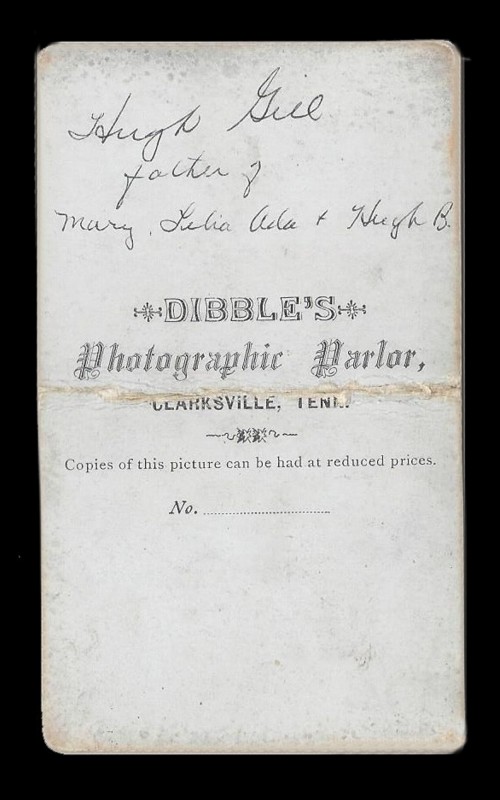 Hugh Gill
father of
Mary, Lelia Ada + Hugh B.
DIBBLE'S
Photographic Parlor,
CLARKSVILLE, TENN.
Copies of this picture can be had at reduced prices.
No.